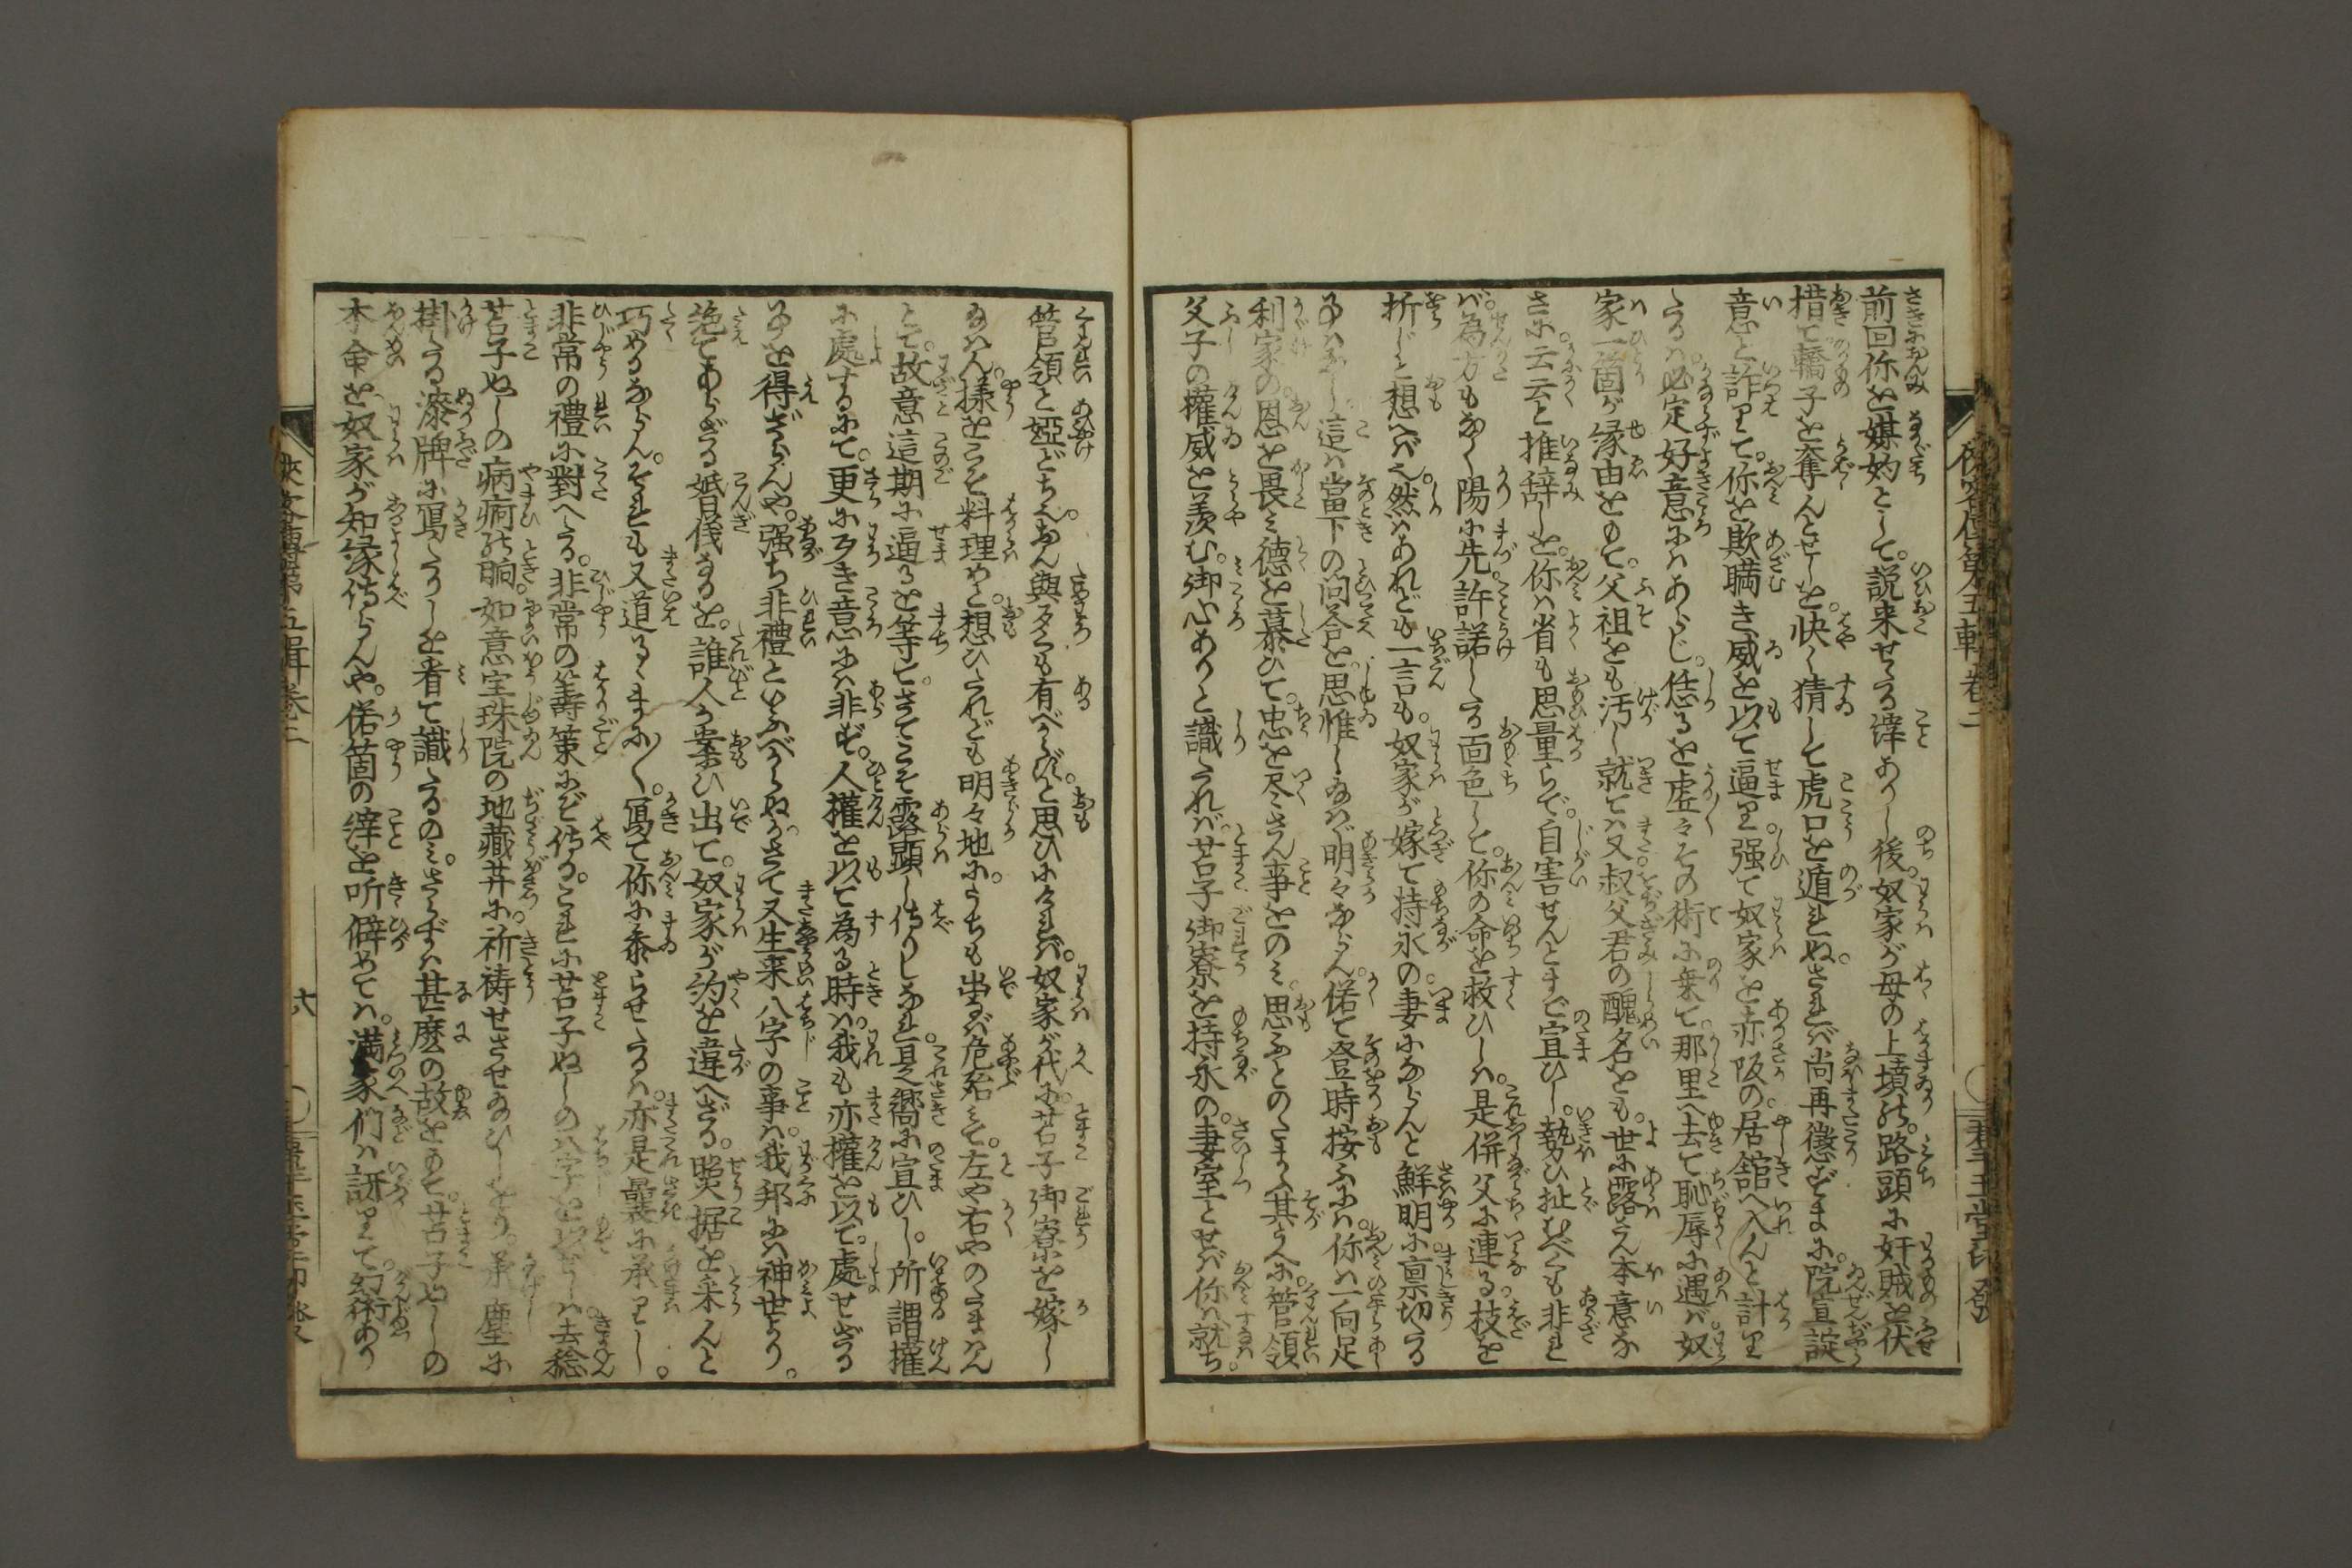 前回你を媒妁として。説来せたる緈ありし後。奴家が母の上墳の。路頭に奸賊を伏
措て轎子を奪んとせしを。快く猜して虎口を遁れぬ。されば尚再懲ずまに。院宣諚
意と詐りて。你を欺瞞き威を以て逼り。强て奴家を赤阪の。居舘へ入んと計り
たるは。必定好意にはあらじ。恁るを虚々その術に乗て。那里へ去て恥辱に遇ば。奴
家一箇が縁由をもて。父祖をも汚し。就ては又叔父君の醜名をも。世に露さん本意な
さに。云云と推辞しを。你は省も思量らで。自害せんとまで宣ひし。勢ひ止むべくも非れ
ば。為方もなく陽に先。許諾したる面色して。你の命を救ひしは。是併父に連る。枝を
折じと想へば也。然はあれども一言も。奴家が嫁て持永の。妻にならんと鮮明に稟切たる
事はなし。這は當下の問答を。思惟し給はゞ明々ならん。偌て登時按ふに。你は一向足
利家の。恩を畏み徳を慕ひて。忠を尽さん事をのみ。思ふとのたまふ其うへに。管領
父子の權威を羨む。御心ありと識たれば。苫子御寮を持永の。妻室とせば你は就ち。
管領と婭どち。なん與タクも有べからずと思ひにければ。奴家が代に苫子御寮を嫁し
給はん。様をこそ料理めと。想ひたれども明々地に。うちも出なば危殆みて。左や右やのたまはん
とて。故意這期に逼るを等て。さてこそ露顕し侍りしなれ。是嚮に宣ひし。所謂權
に處するにて。更に歹き意には非ず。人權を以て為る時は。我も亦權を以て。處せざる
事を得ざらんや。强ち非禮といふべからぬか。さて又生来八字の事は。我邦には神世より。
絶てあらざる婚儀なるを。誰人か案ひ出て。奴家が約を違へざる。照据を采んと
巧めるならん。それも又道るゝまに〱。寫て你に黍らせたるは。亦是曩に承りし。
非常の禮に對へたる。非常の籌策にぞ侍る。これに苫子ぬしの八字を以せしは。去稔
苫子ぬしの病痾の晌。如意宝珠院の地藏井に。祈祷せさせ給ひしをり。承塵に
掛たる漆牌に寫たりしを看て識たるのみ。さらずは甚麽の故をもて。苫子ぬしの
本命を。奴家が知縁侍らんや。偌箇の緈を听僻めては。満家们は訝りて。幻術あり